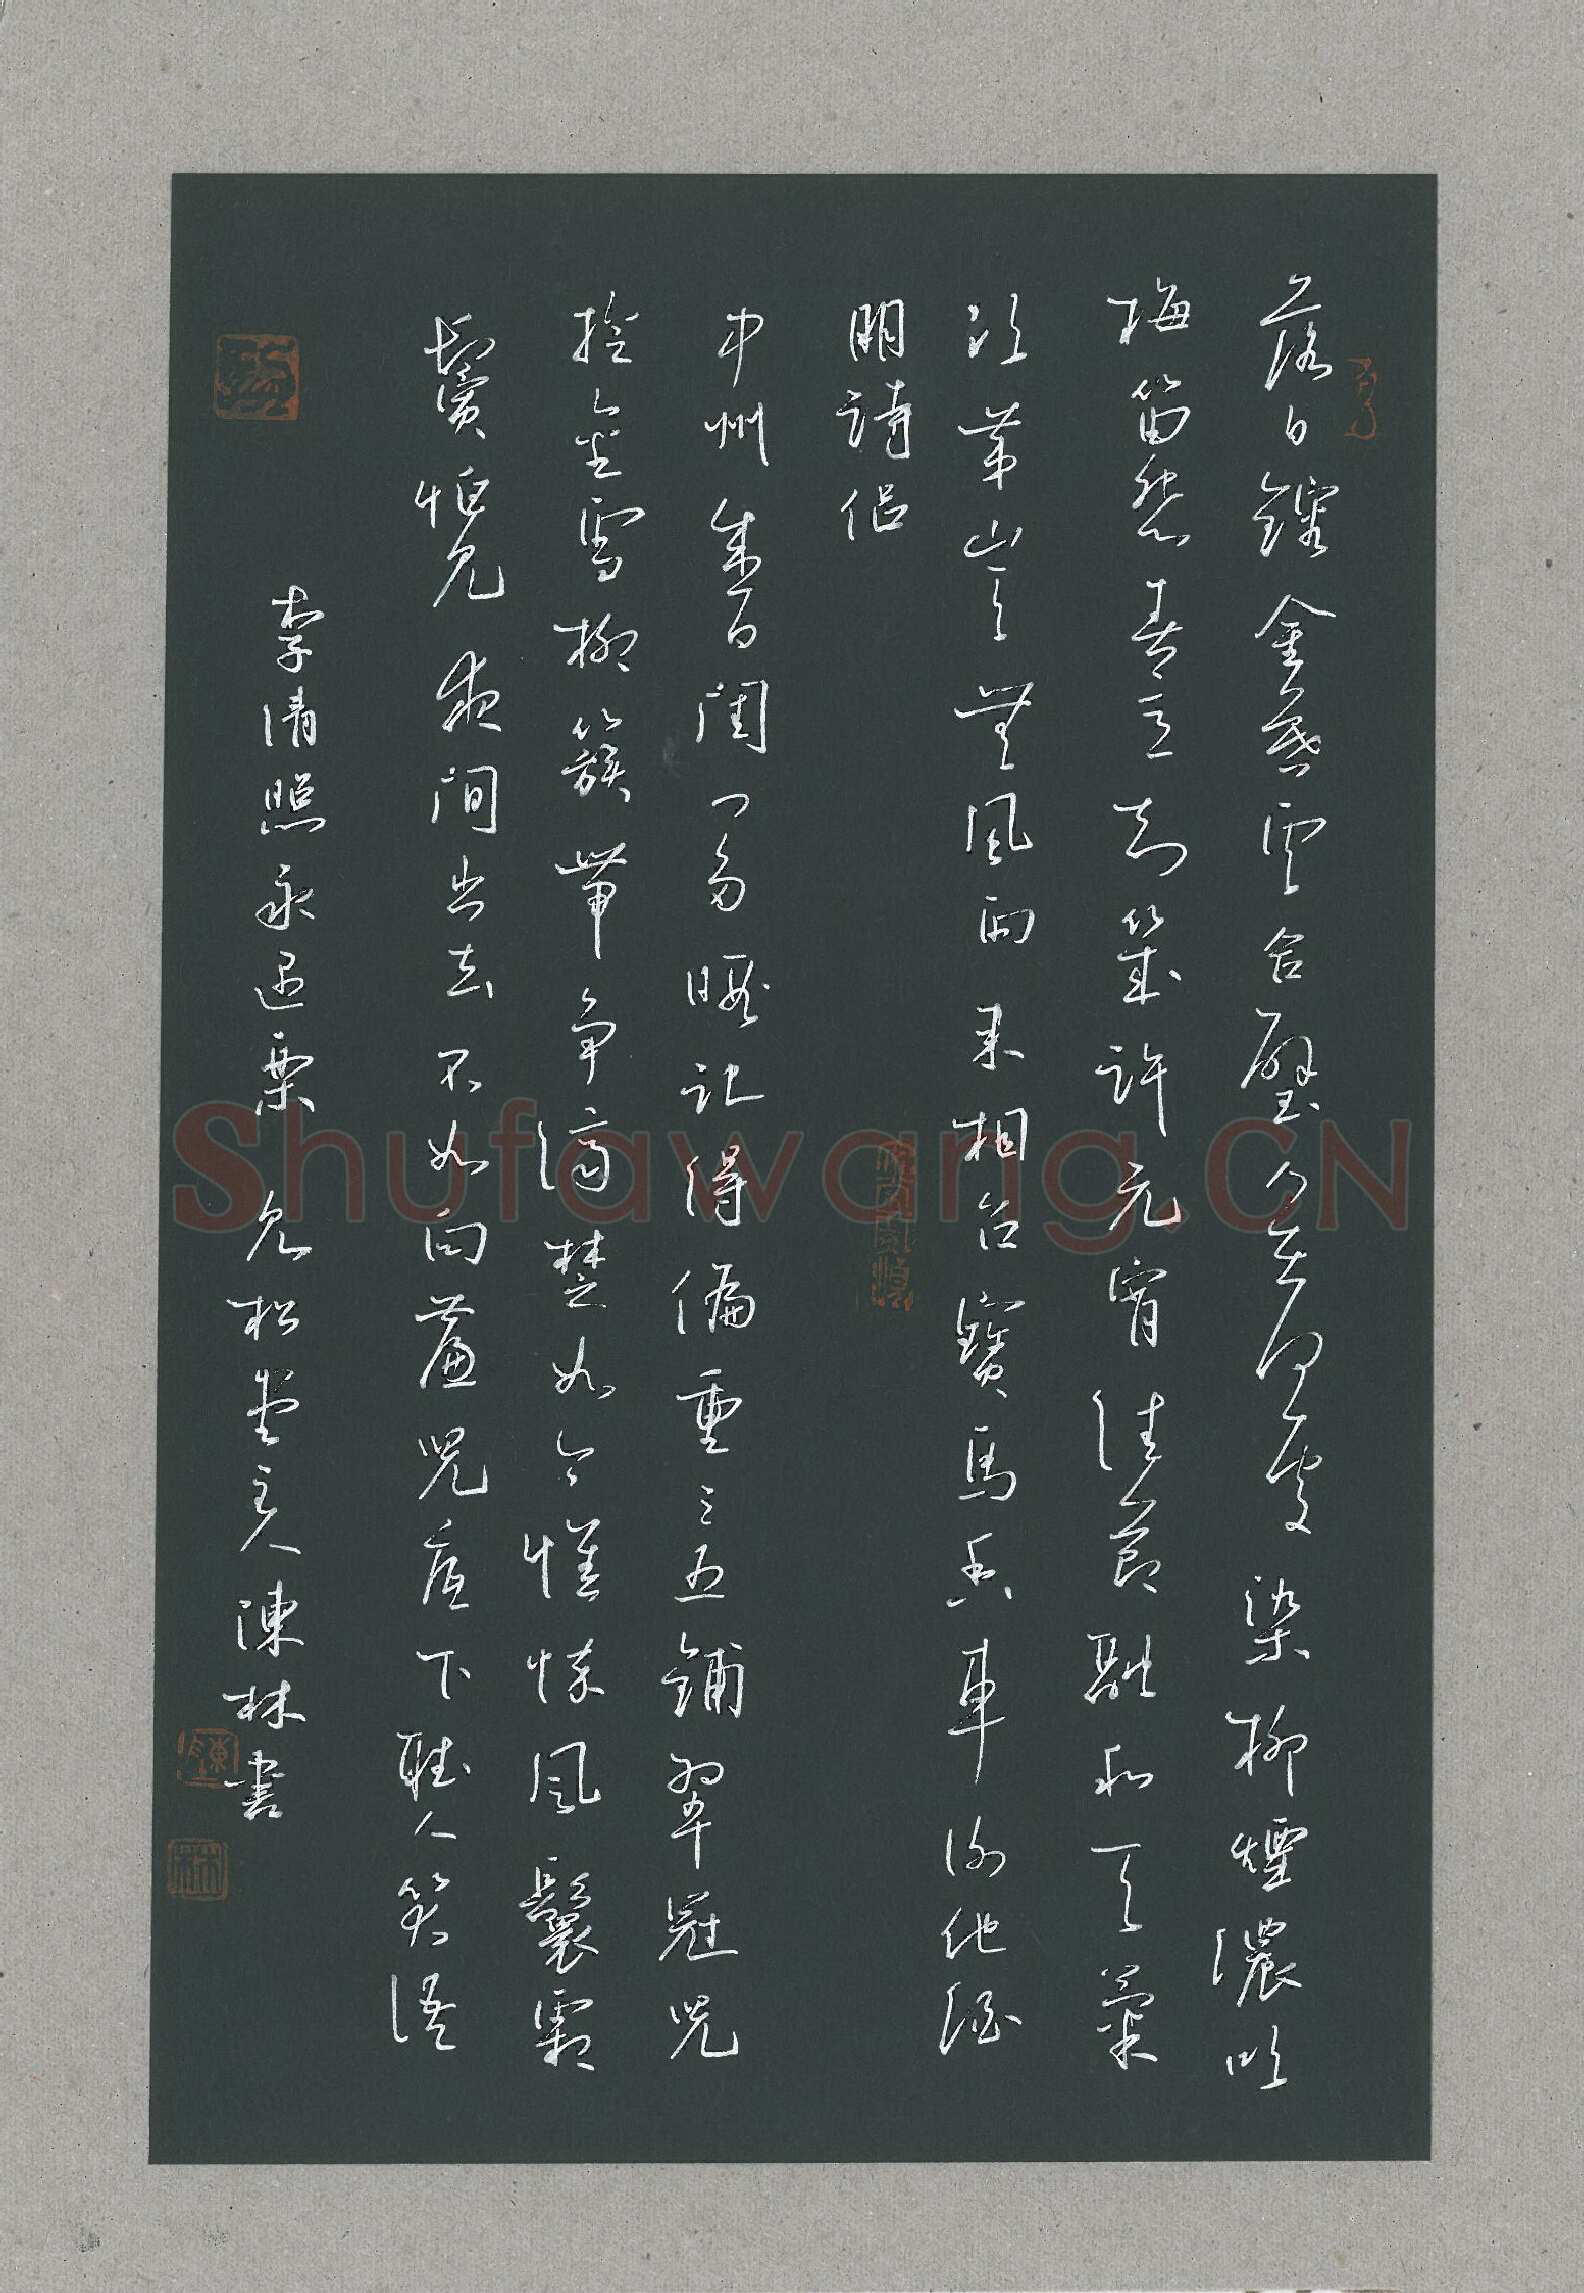 落日鎔金暮雲合璧人在何處染柳煙濃吹
梅笛怨春意知幾許元宵佳節融和天氣
次第豈無風雨来相召寶馬香車謝他酒
朋詩侣
中州盛日閨門多暇記得偏重三五鋪翠冠兒
撚金雪柳簇帶争濟楚如今憔悴風鬟霜
鬢怕見夜間出去不如向簾兒底下聽人笑語
李清照永遇樂 見松堂主人陳林書
陳
林
Shufawang.CN